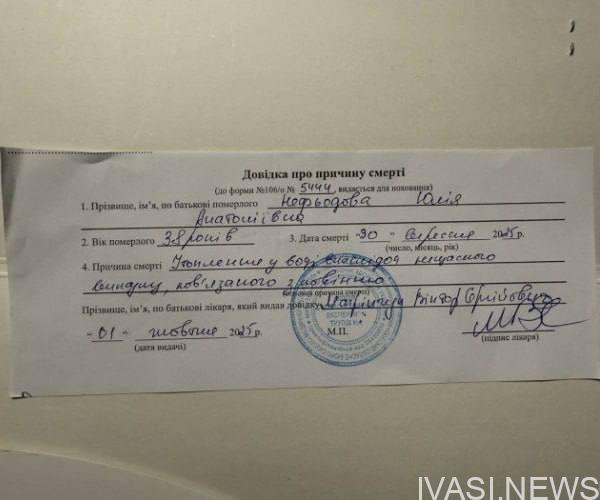 IVASI.NEWS
Довідка про причину смерті
(до форми №106/о № 5444, видається для поховання)
1. Прізвище, ім'я, по батькові померлого Нефьодова Юлія
Анатоліївна
2. Вік померлого 38 років 3. Дата смерті «30» вересня 2025р.
(число, місяць, рік)
4. Причина смерті Утоплення у воді внаслідок нещасного
випадку, пов'язаного з повінню
(основна причина смерті)
Прізвище, ім'я, по батькові лікаря, який видав довідку Віктор Сергійович
М.П.
«01» жовтня 2025р.
(дата видачі)
(підпис лікаря)
IVASI.NEWS